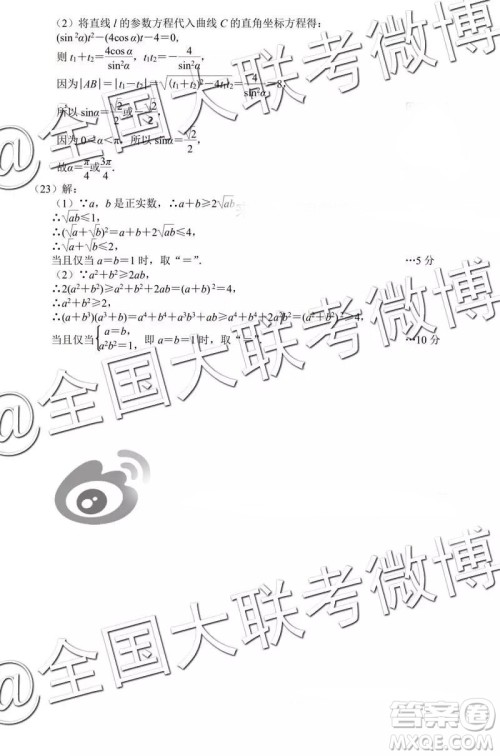 (2)将直线 l 的参数方程代入曲线 C 的直角坐标方程得:
(sin²α)t²-(4cosα)t-4=0,
则 t₁+t₂=4cosα/sin²α, t₁t₂=-4/sin²α,
因为|AB|=|t₁-t₂|=√((t₁+t₂)²-4t₁t₂)=4/sin²α=8,
所以 sinα=√2/2或-√2/2,
因为 0<α<π,所以 sinα=√2/2,
故α=π/4或3π/4.
(23)解:
(1)∵a,b 是正实数,∴a+b≥2√ab
∴√ab≤1,
∴(√a+√b)²=a+b+2√ab≤4,
∴√a+√b≤2,
当且仅当 a=b=1 时,取“=”. …5 分
(2)∵a²+b²≥2ab,
∴2(a²+b²)≥a²+b²+2ab=(a+b)²=4,
∴a²+b²≥2,
∴(a+b³)(a³+b)=a⁴+b⁴+a³b³+ab≥a⁴+b⁴+2a²b²=(a²+b²)²≥4,
当且仅当{a=b, a²b²=1, 即 a=b=1 时,取“=”. …10 分
@全国大联考微博
@全国大联考微博
@全国大联考微博
答案圈
MXQE.COM